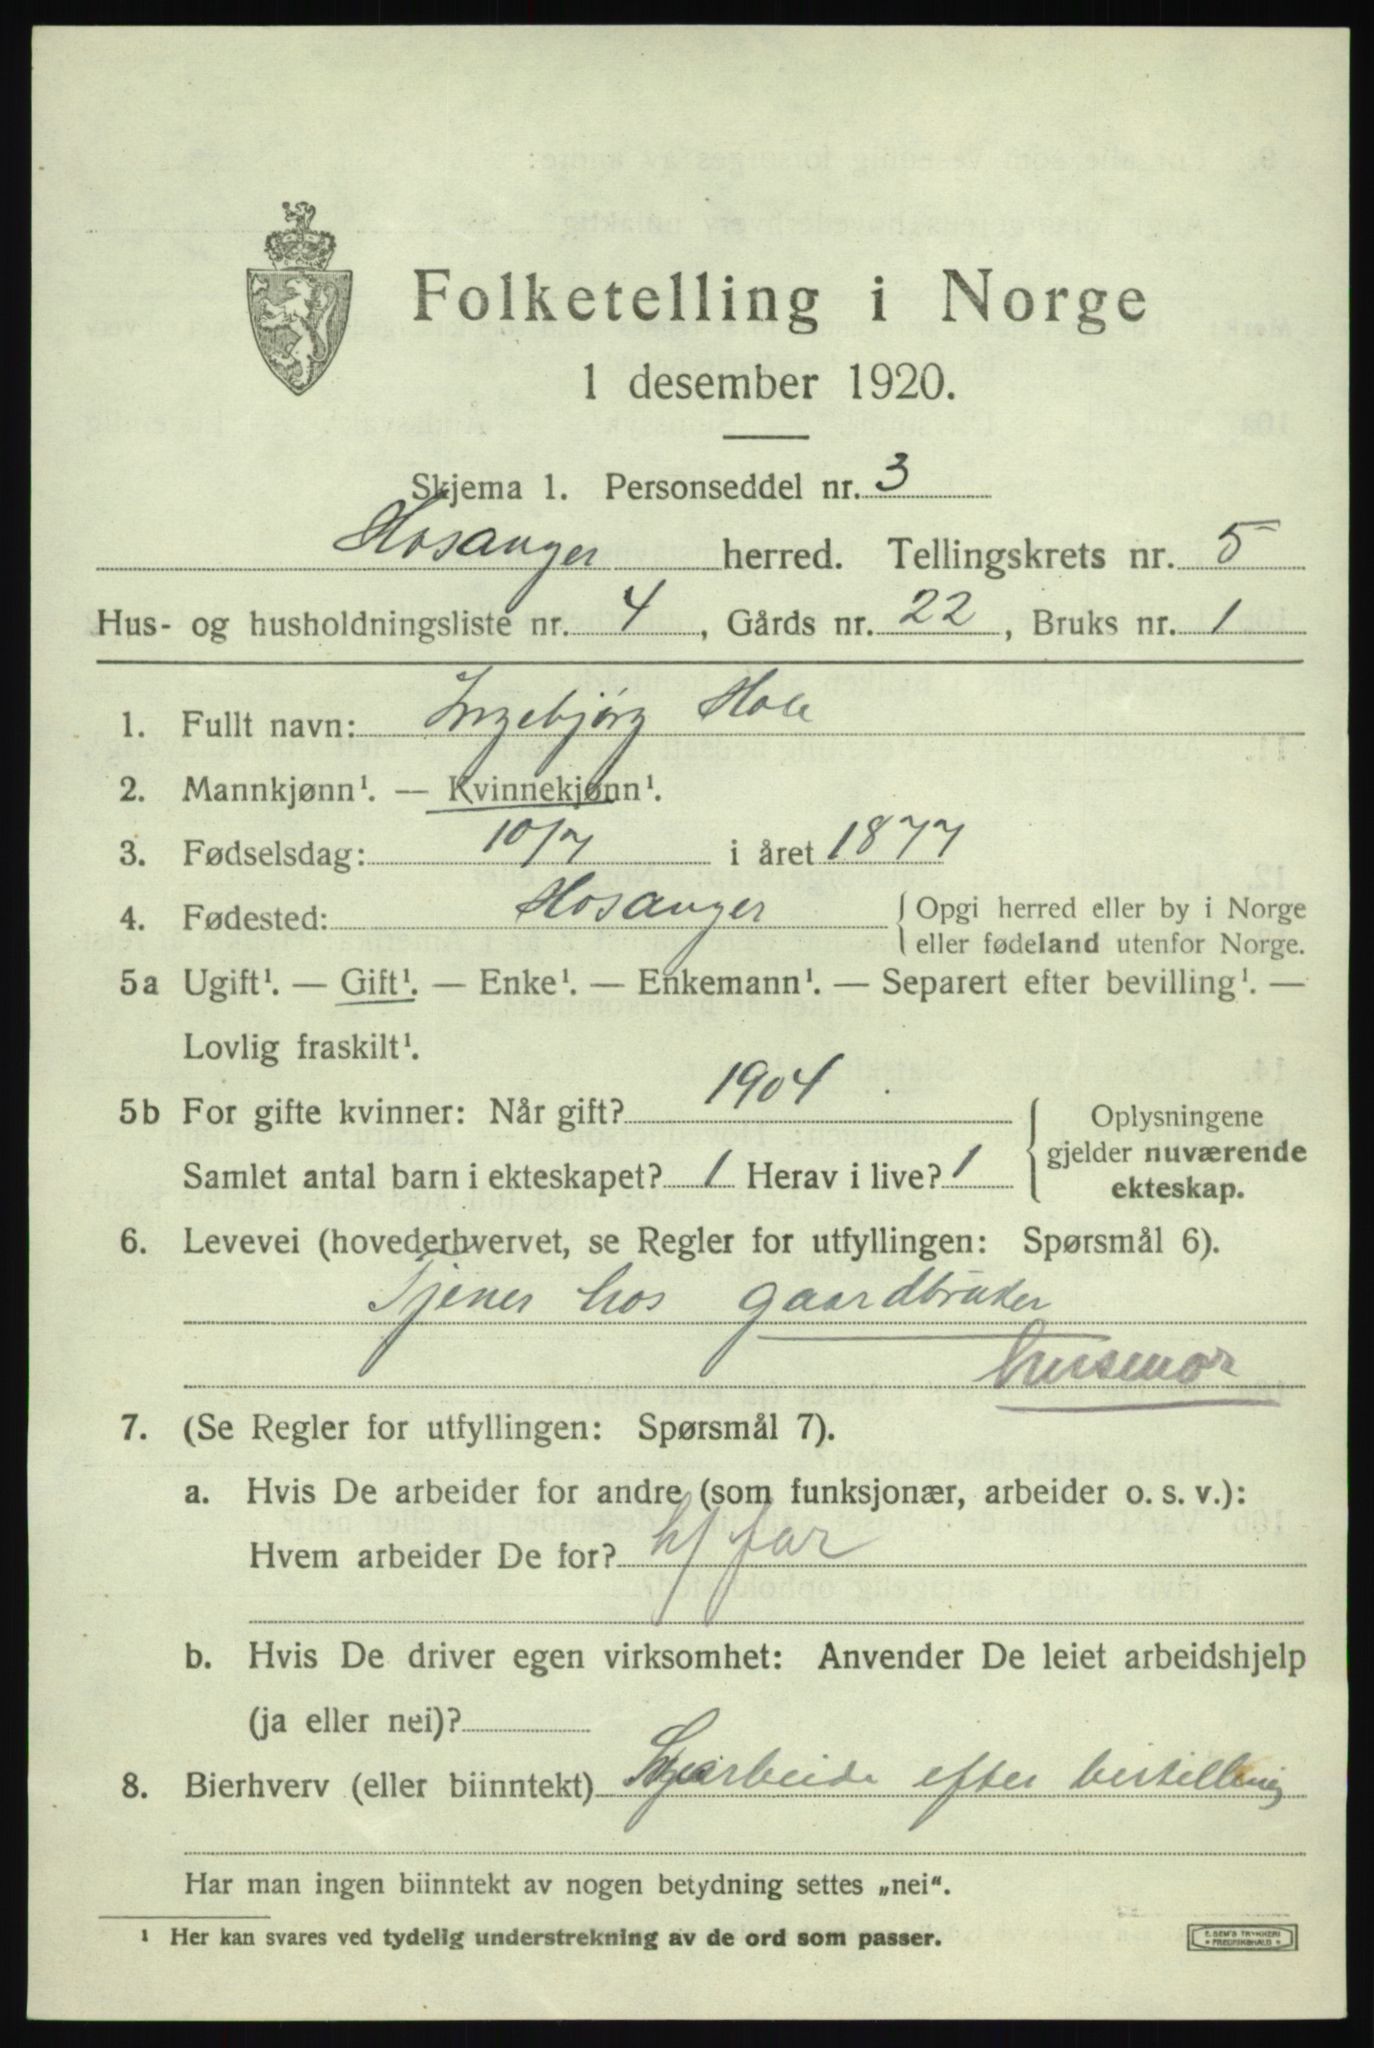 Folketelling i Norge
1 desember 1920.
Skjema 1. Personseddel nr. 3
Hosanger herred. Tellingskrets nr. 5
Hus- og husholdningsliste nr. 4, Gårds nr. 22, Bruks nr. 1
1. Fullt navn: Ingebjørg Hole
2. Mannkjønn¹. — Kvinnekjønn¹.
3. Fødselsdag: 10/7 i året 1877
4. Fødested: Hosanger { Opgi herred eller by i Norge
eller fødeland utenfor Norge.
5a Ugift¹. — Gift¹. — Enke¹. — Enkemann¹. — Separert efter bevilling¹. —
Lovlig fraskilt¹.
5b For gifte kvinner: Når gift? 1904
Samlet antal barn i ekteskapet? 1 Herav i live? 1
Oplysningene
gjelder nuværende
ekteskap.
6. Levevei (hovederhvervet, se Regler for utfyllingen: Spørsmål 6).
Tjener hos gaardbruker
husmor
7. (Se Regler for utfyllingen: Spørsmål 7).
a. Hvis De arbeider for andre (som funksjonær, arbeider o. s. v.):
Hvem arbeider De for? h/ far
b. Hvis De driver egen virksomhet: Anvender De leiet arbeidshjelp
(ja eller nei)?
8. Bierhverv (eller biinntekt) efter bestilling
Har man ingen biinntekt av nogen betydning settes „nei“.
¹ Her kan svares ved tydelig understrekning av de ord som passer.
E. SEM'S TRYKKERI
FREDRIKSHALD